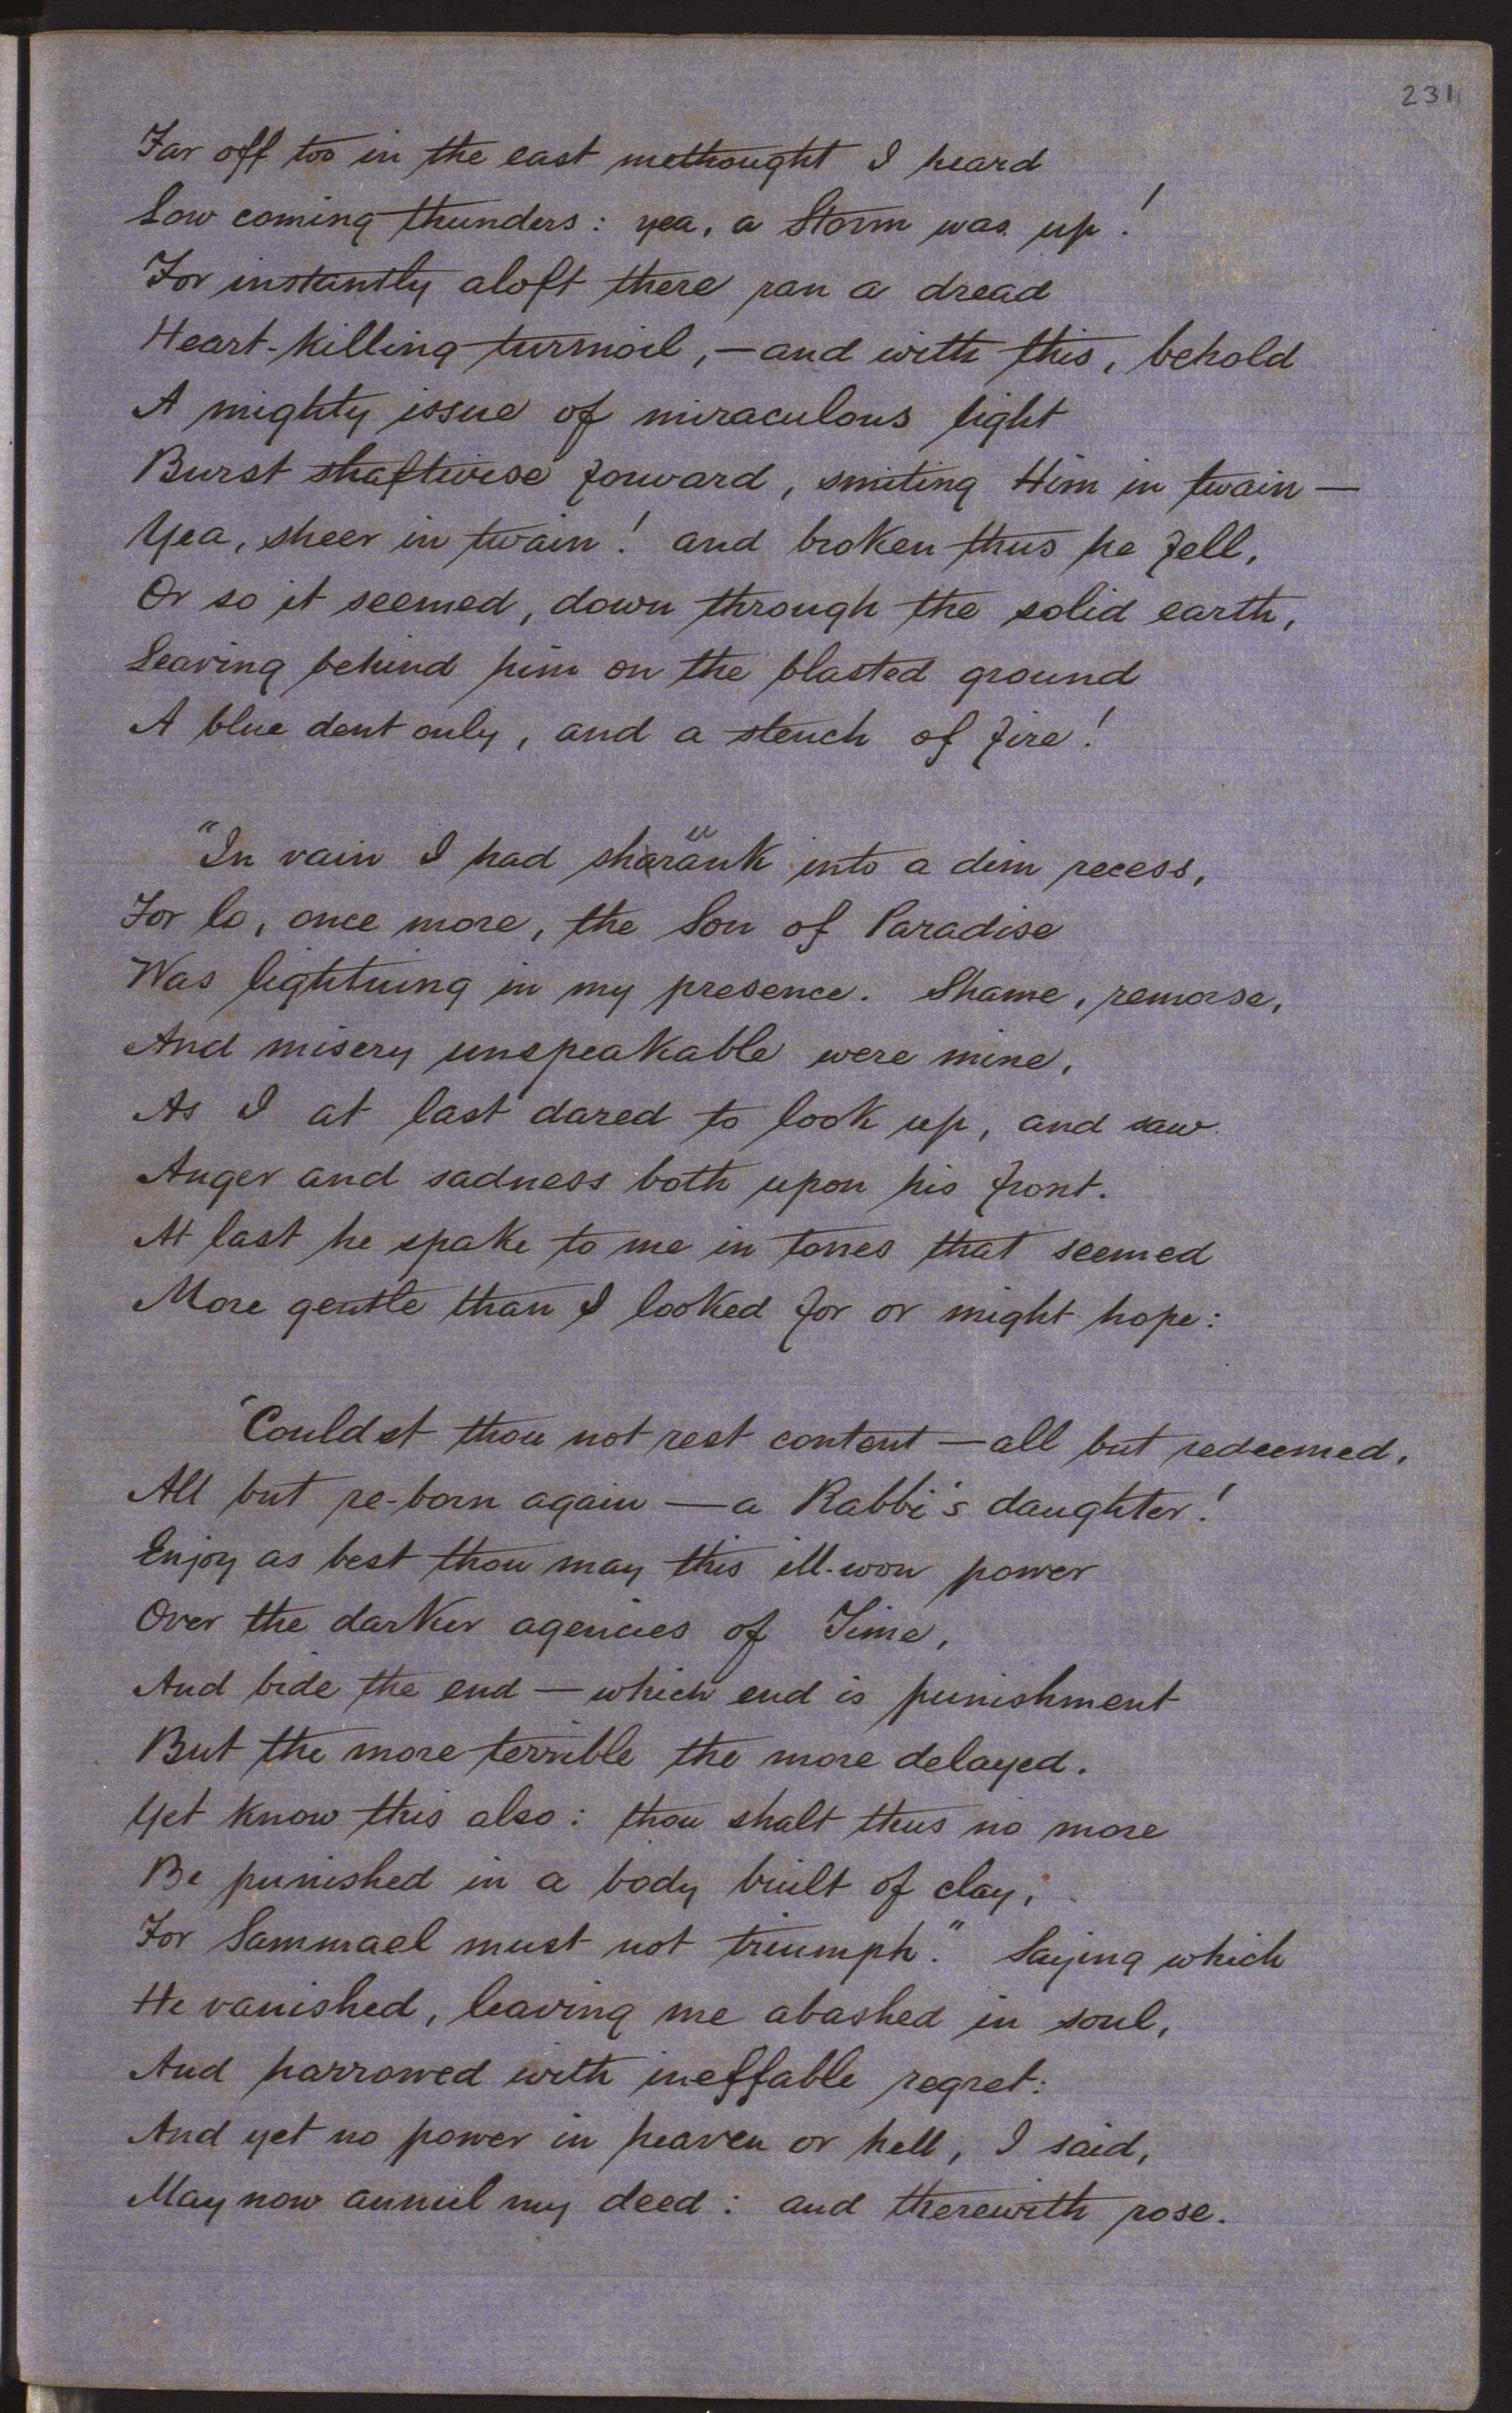 231
Far off too in the east methought I heard
Low coming thunders: yea, a Storm was up!
For instantly aloft there ran a dread
Heart-killing turmoil, — and with this, behold
A mighty issue of miraculous light
Burst shaftwise forward, smiting Him in twain —
Yea, sheer in twain! and broken thus he fell,
Or so it seemed, down through the solid earth,
Leaving behind him on the blasted ground
A blue dent only, and a stench of fire!
"In vain I had shrunk into a dim recess,
For lo, once more, the Son of Paradise
Was lightning in my presence. Shame, remorse,
And misery unspeakable were mine,
As I at last dared to look up, and saw
Anger and sadness both upon his front.
At last he spake to me in tones that seemed
More gentle than I looked for or might hope:
'Couldst thou not rest content — all but redeemed,
All but re-born again — a Rabbi's daughter!
Enjoy as best thou may this ill-won power
Over the darker agencies of Time,
And bide the end — which end is punishment
But the more terrible the more delayed.
Yet know this also: thou shalt thus no more
Be punished in a body built of clay,
For Sammael must not triumph." Saying which
He vanished, leaving me abashed in soul,
And harrowed with ineffable regret:
And yet no power in heaven or hell, I said,
May now annul my deed: and therewith rose.